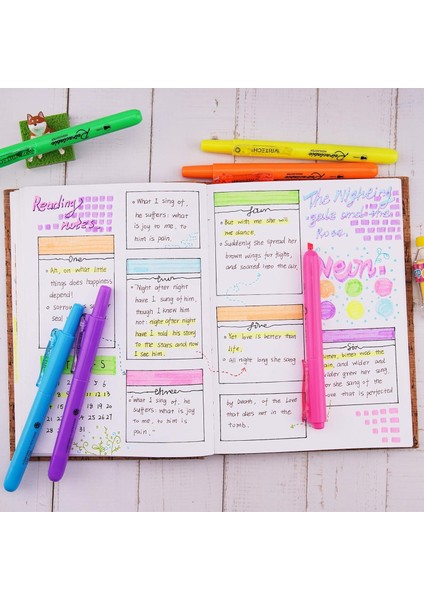 Reading
notes
One
Ah, on what little
things does happiness
depend!
sorrow
Seal
S
What I sing of,
he suffers: what is
joy to me, to
him is pain.
"Night after night
have I sung of him,
though I knew him
not: night after night
have I told his story
to the stars and now
I see him.
What I sing of, he
suffers: what is joy
to me, to him is
pain."
But with me she will
me dance.
Suddenly she spread her
brown wings for flight,
and soared into the air.
Five
Yet love is better than
life.
All night long she sang
by Death, of the Love
that dies not in the
tomb.
The Nightin
gale and the
Rose.
Neon
Six
bitter was the
pain, and wilder and
wilder grew her song,
she sang of the
Love that is perfected